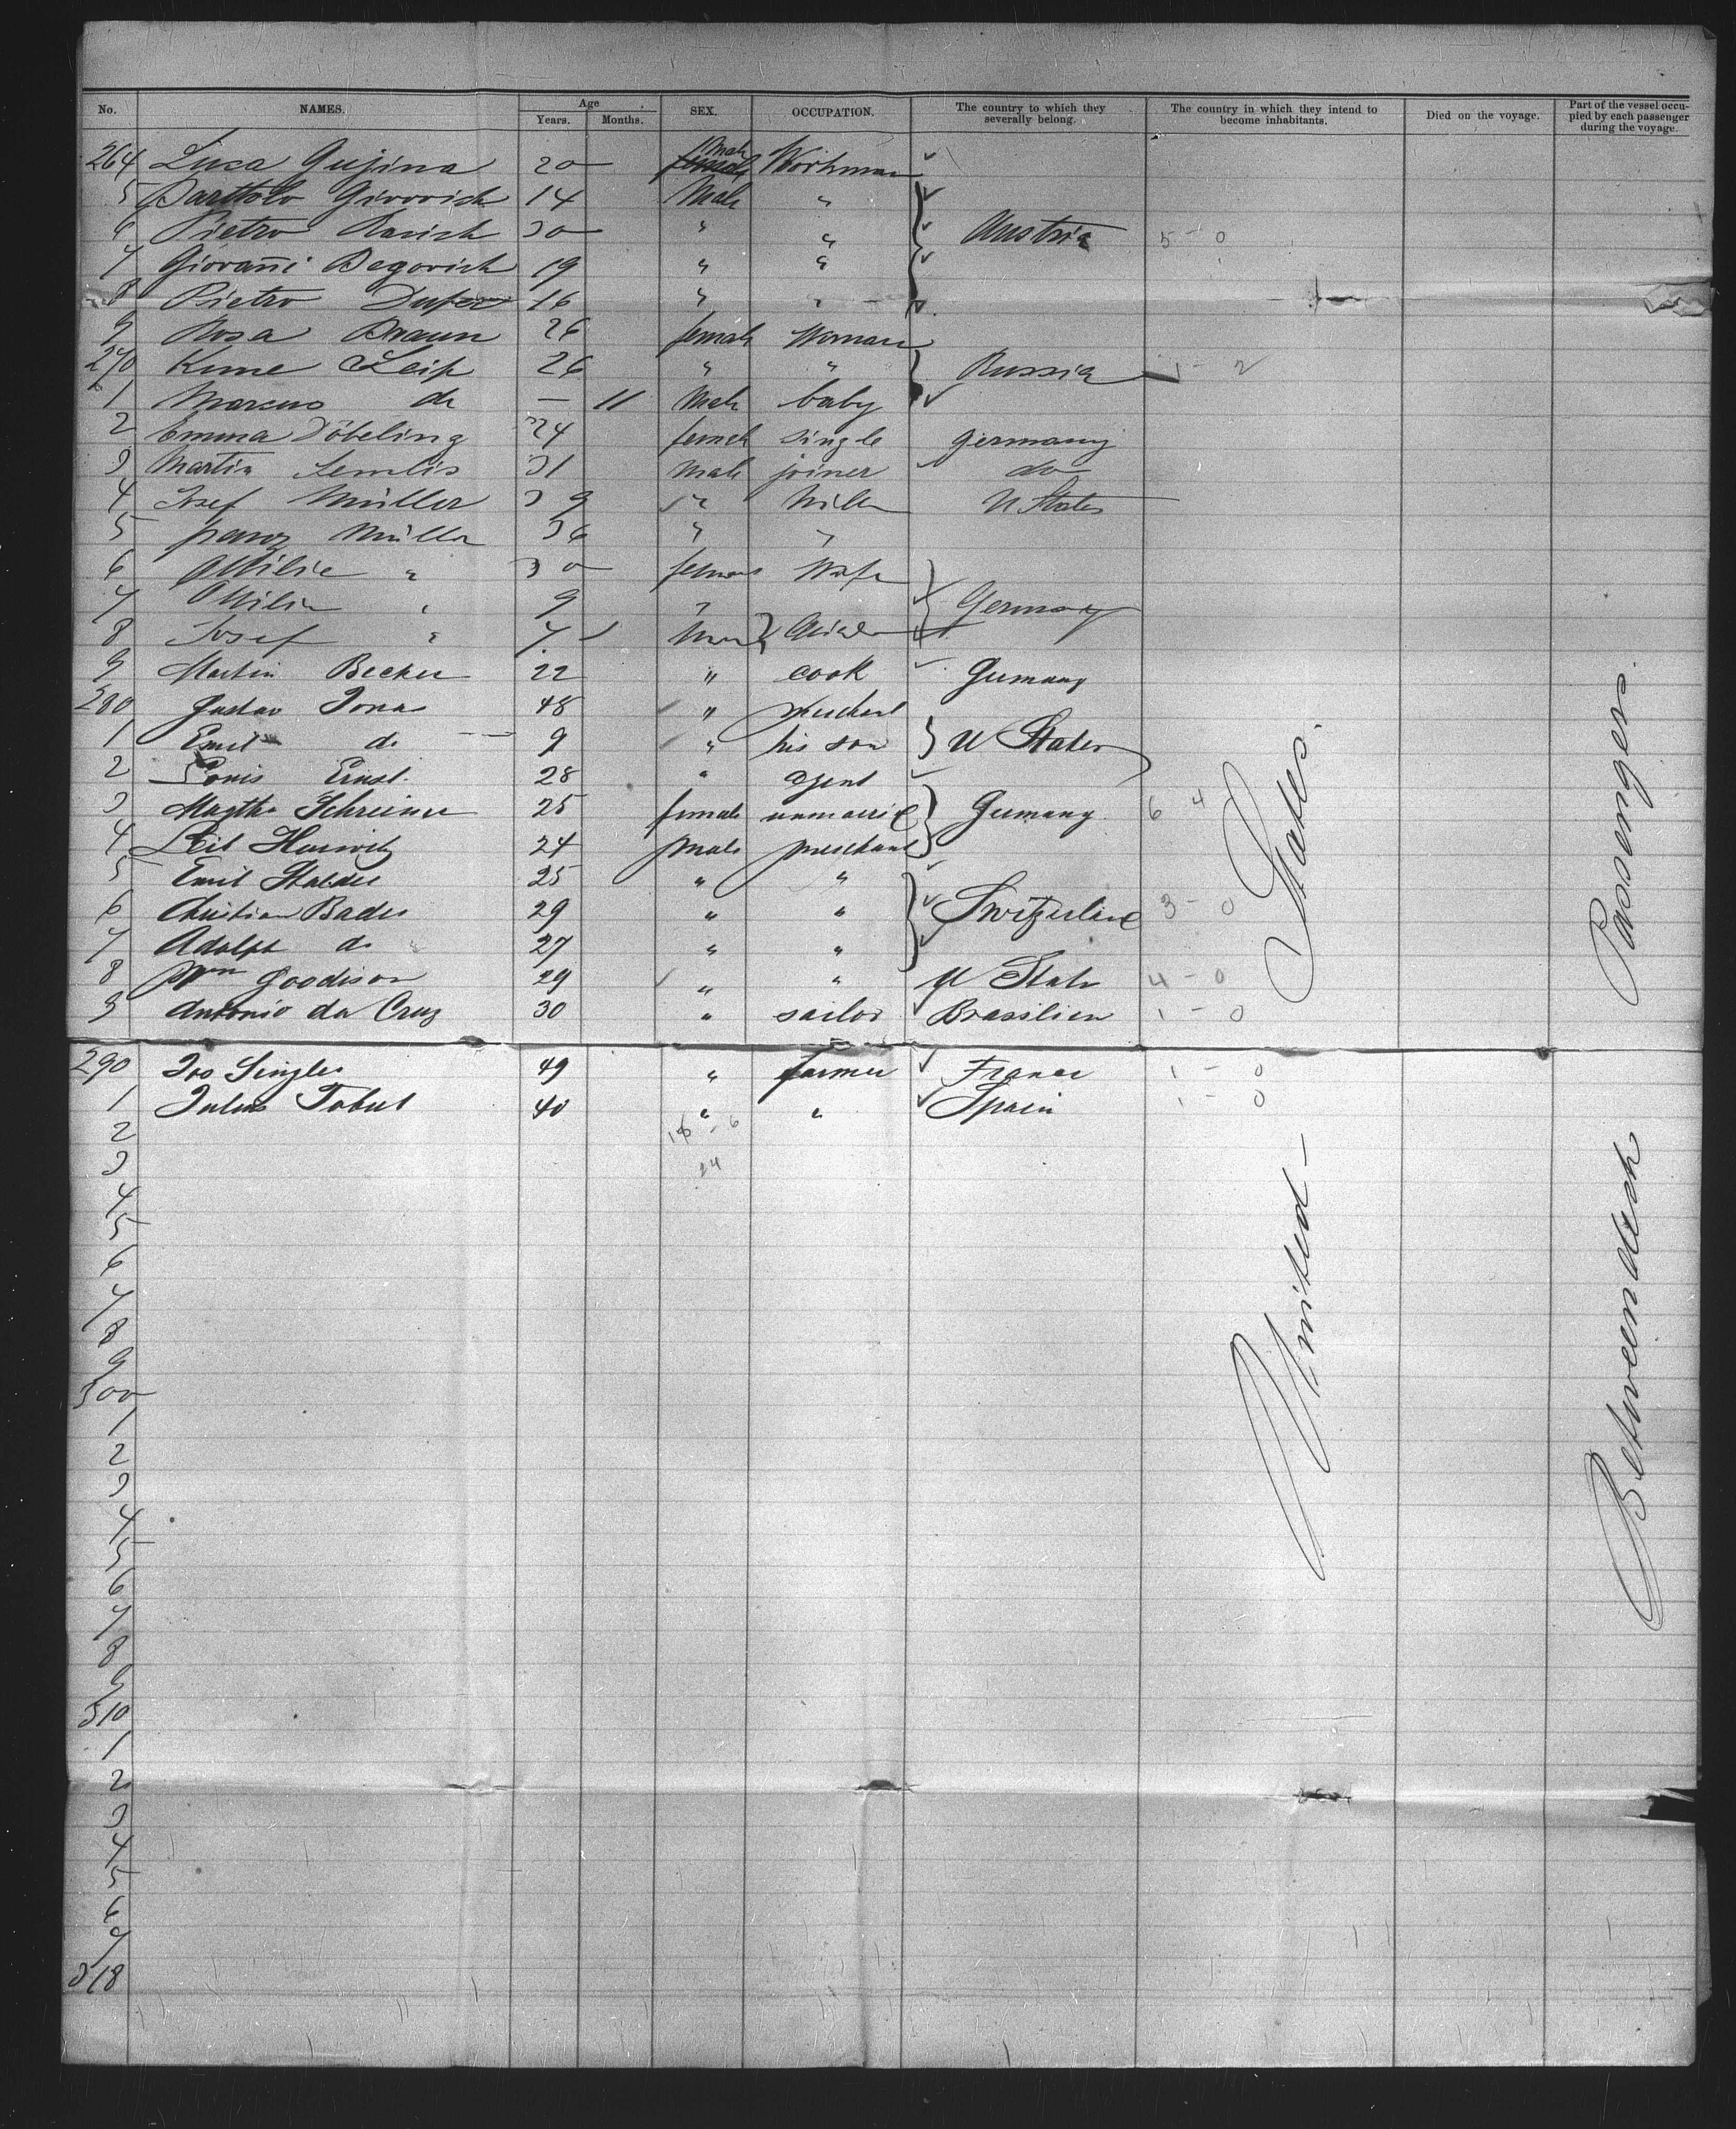 No. NAMES. Age Years. Months. SEX. OCCUPATION. The country to which they severally belong. The country in which they intend to become inhabitants. Died on the voyage. Part of the vessel occupied by each passenger during the voyage.
264 Luca Gujina 20 Male female Workman
5 14 Male "
6 Pietro 30 " " Austria 5 - 0
7 Giovanni Begovich 19 " "
8 Pietro 16 " "
9 Rosa Braun 26 female Woman
270 Leip 26 " " Russia 1 - 2
1 Marcus do — 11 Male baby
2 Emma Döbeling 24 female single Germany
3 Martin 31 male joiner do
4 Josef Müller 39 " U States
5 Franz Müller 36 " "
6 Ottilie " 30 female Wife
7 Ottilie " 9 " Germany
8 Josef " 7
9 Martin Becker 22 " cook Germany
280 Gustav Jonas 48 " merchant
1 Emil do 9 " his son U States
2 Louis Ernst 28 " agent
3 Martha Schreiner 25 female unmarried Germany 6 4
4 Leib Hurwitz 24 male merchant
5 Emil Stalder 25 " "
6 Christian Bader 29 " " Switzerland 3 - 0
7 Adolph do 27 " "
8 Wm Goodison 29 " " U States 4 - 0
9 Antonio da Cruz 30 " sailor Brasilien 1 - 0
290 Jos Singler 49 " farmer France 1 - 0
1 Julius 40 " " Spain 1 - 0
2 18 - 6
3 24
4
5
6
7
8
9
300
1
2
3
4
5
6
7
8
9
310
1
2
3
4
5
6
7
318
United States.
Betweendeck Passengers.